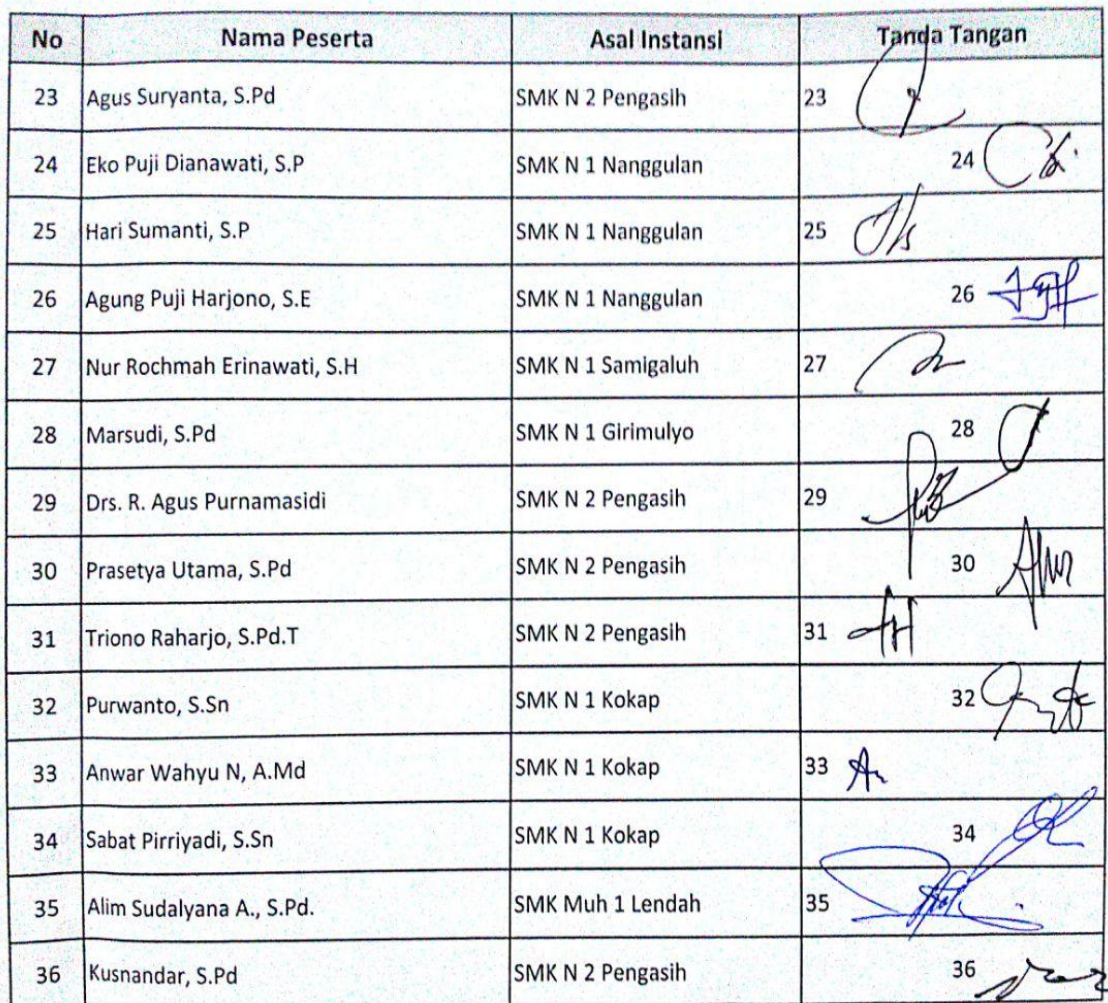 No Nama Peserta Asal Instansi Tanda Tangan
23 Agus Suryanta, S.Pd SMK N 2 Pengasih 23
24 Eko Puji Dianawati, S.P SMK N 1 Nanggulan 24
25 Hari Sumanti, S.P SMK N 1 Nanggulan 25
26 Agung Puji Harjono, S.E SMK N 1 Nanggulan 26
27 Nur Rochmah Erinawati, S.H SMK N 1 Samigaluh 27
28 Marsudi, S.Pd SMK N 1 Girimulyo 28
29 Drs. R. Agus Purnamasidi SMK N 2 Pengasih 29
30 Prasetya Utama, S.Pd SMK N 2 Pengasih 30
31 Triono Raharjo, S.Pd.T SMK N 2 Pengasih 31
32 Purwanto, S.Sn SMK N 1 Kokap 32
33 Anwar Wahyu N, A.Md SMK N 1 Kokap 33
34 Sabat Pirriyadi, S.Sn SMK N 1 Kokap 34
35 Alim Sudalyana A., S.Pd. SMK Muh 1 Lendah 35
36 Kusnandar, S.Pd SMK N 2 Pengasih 36